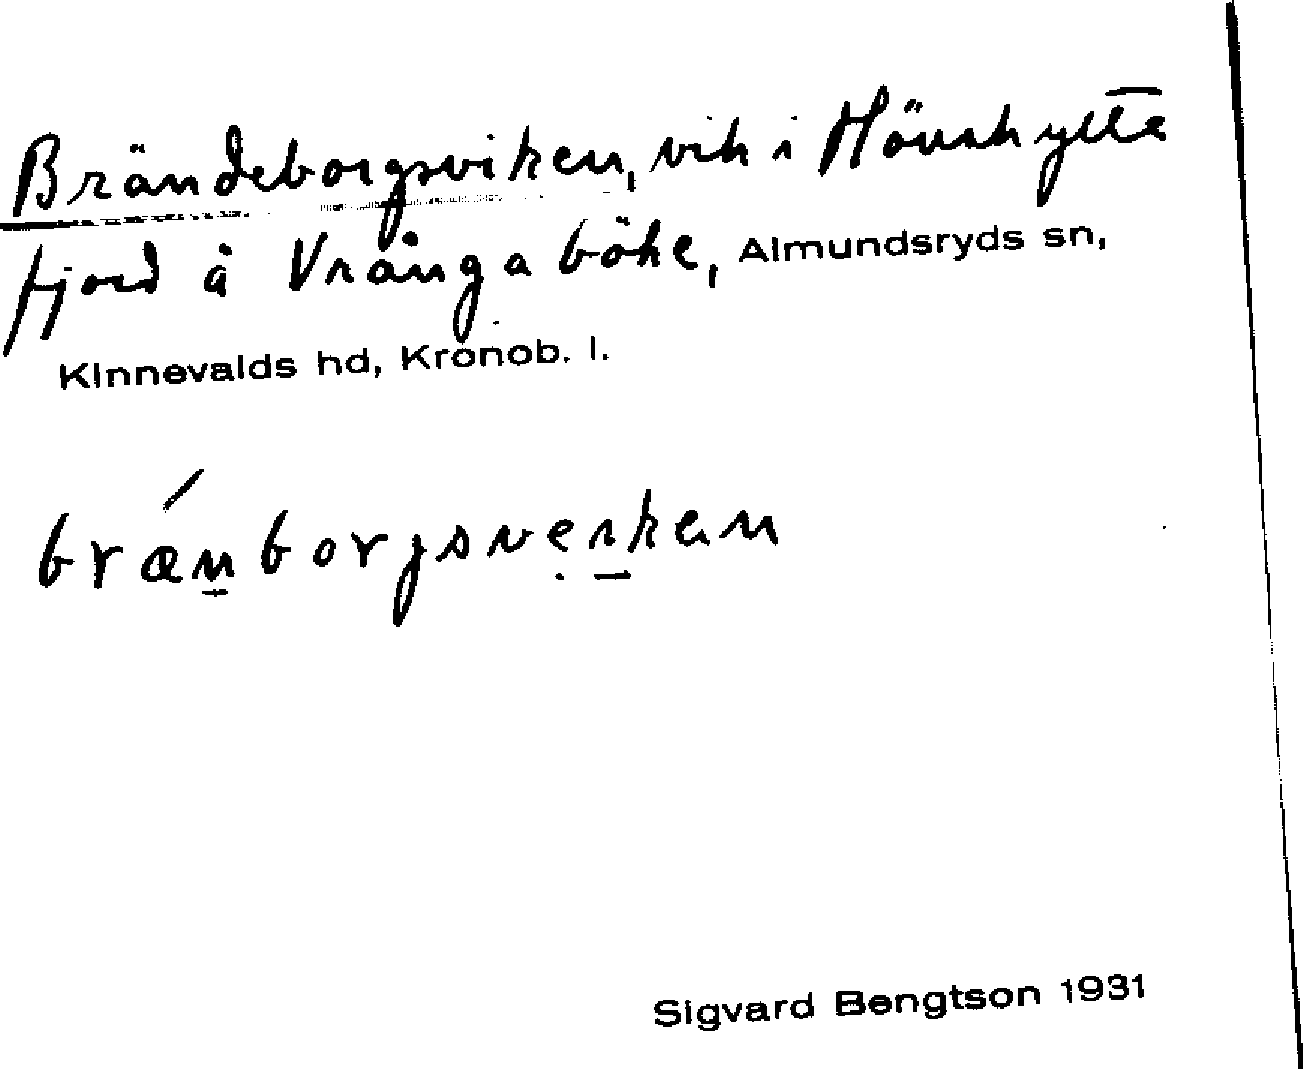 Brändeborgsviken, vik i Hönshylte
fjord å Vrångaböke, Almundsryds sn,
Kinnevalds hd, Kronob. l.
brǽn̠borgsvẹi̠kæn
Sigvard Bengtson 1931